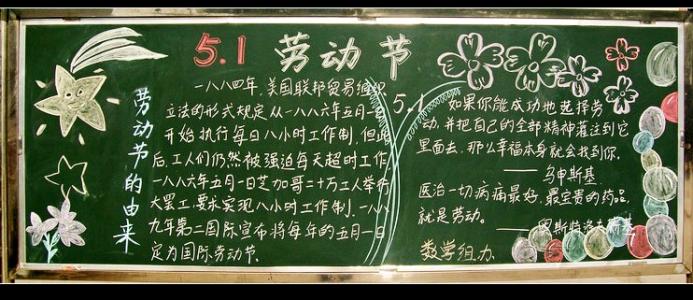 5.1 劳动节
劳动节的由来
一八八四年,美国联邦贸易组织
立法的形式规定从一八八六年五月一日
开始执行每日八小时工作制,但此
后,工人们仍然被强迫每天超时工作
一八八六年五月一日芝加哥二十万工人举行
大罢工要求实现八小时工作制.一八八
九年第二国际宣布将每年的五月一日
定为国际劳动节.
5.1
如果你能成功地选择劳
动,并把自己的全部精神灌注到它
里面去,那么幸福本身就会找到你.
——乌申斯基
医治一切病痛最好,最宝贵的药品,
就是劳动.
——
数学组.办